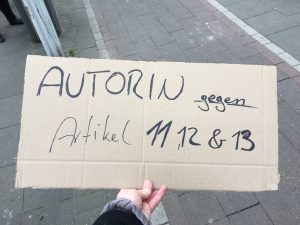 AUTORIN gegen
Artikel 11, 12 & 13